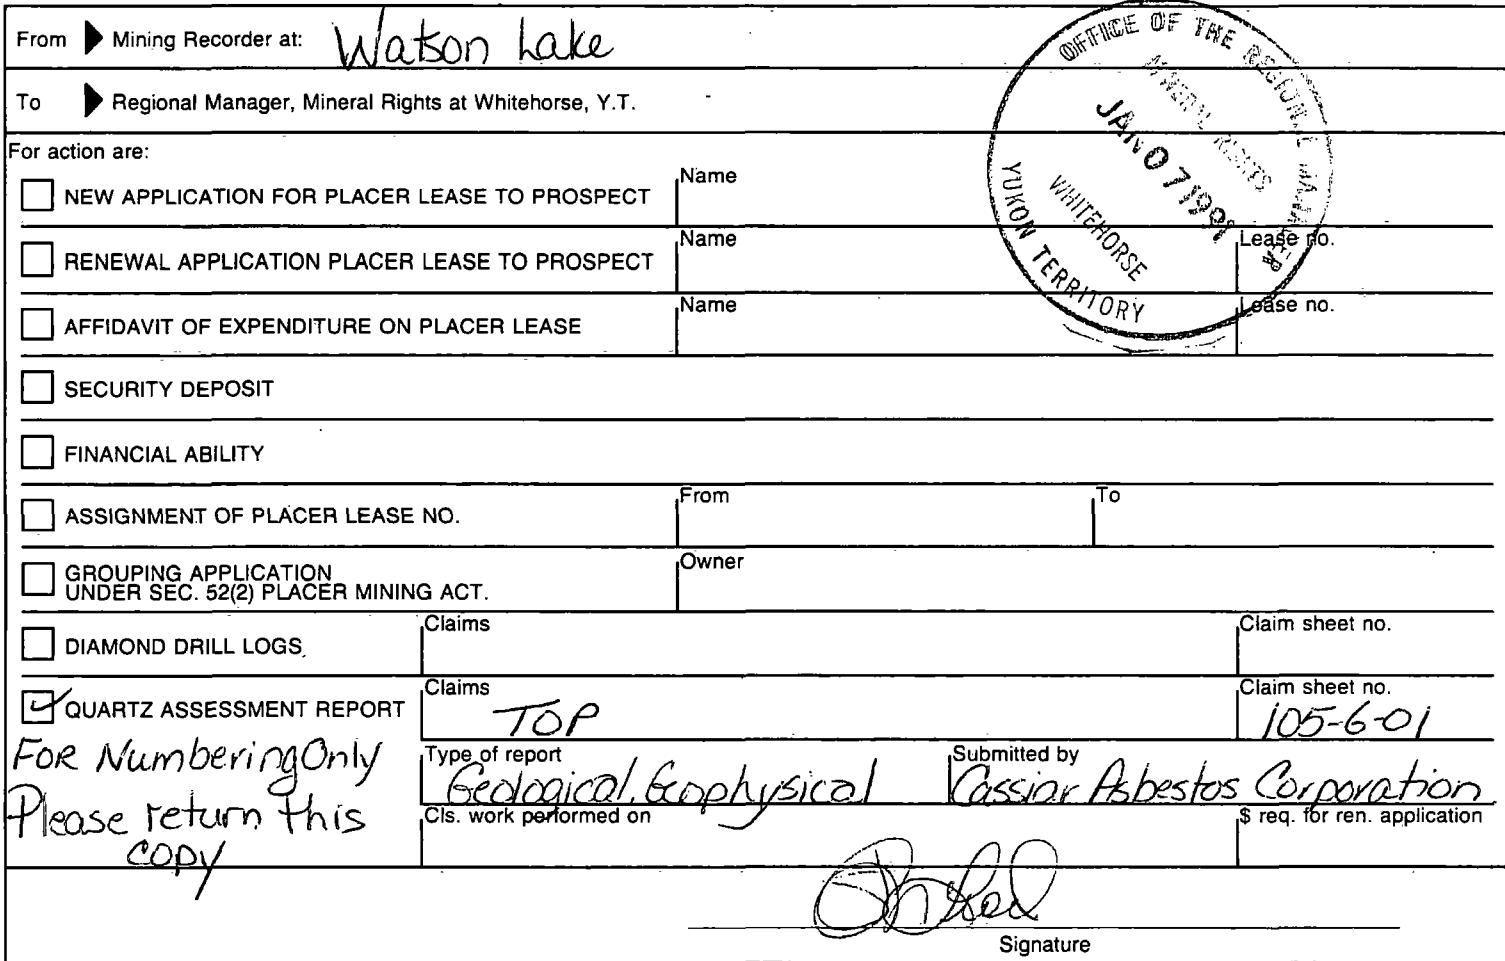 From Mining Recorder at: Watson Lake
To Regional Manager, Mineral Rights at Whitehorse, Y.T.
OFFICE OF THE REGIONAL MANAGER
MINERAL RIGHTS
JAN 07 1991
WHITEHORSE
YUKON TERRITORY
For action are:
NEW APPLICATION FOR PLACER LEASE TO PROSPECT Name
RENEWAL APPLICATION PLACER LEASE TO PROSPECT Name Lease no.
AFFIDAVIT OF EXPENDITURE ON PLACER LEASE Name Lease no.
SECURITY DEPOSIT
FINANCIAL ABILITY
ASSIGNMENT OF PLACER LEASE NO. From To
GROUPING APPLICATION Owner
UNDER SEC. 52(2) PLACER MINING ACT.
DIAMOND DRILL LOGS Claims Claim sheet no.
QUARTZ ASSESSMENT REPORT Claims TOP Claim sheet no. 105-6-01
FOR Numbering Only
Please return this
copy
Type of report Geological, Geophysical Submitted by Cassiar Asbestos Corporation
Cls. work performed on $ req. for ren. application
Signature